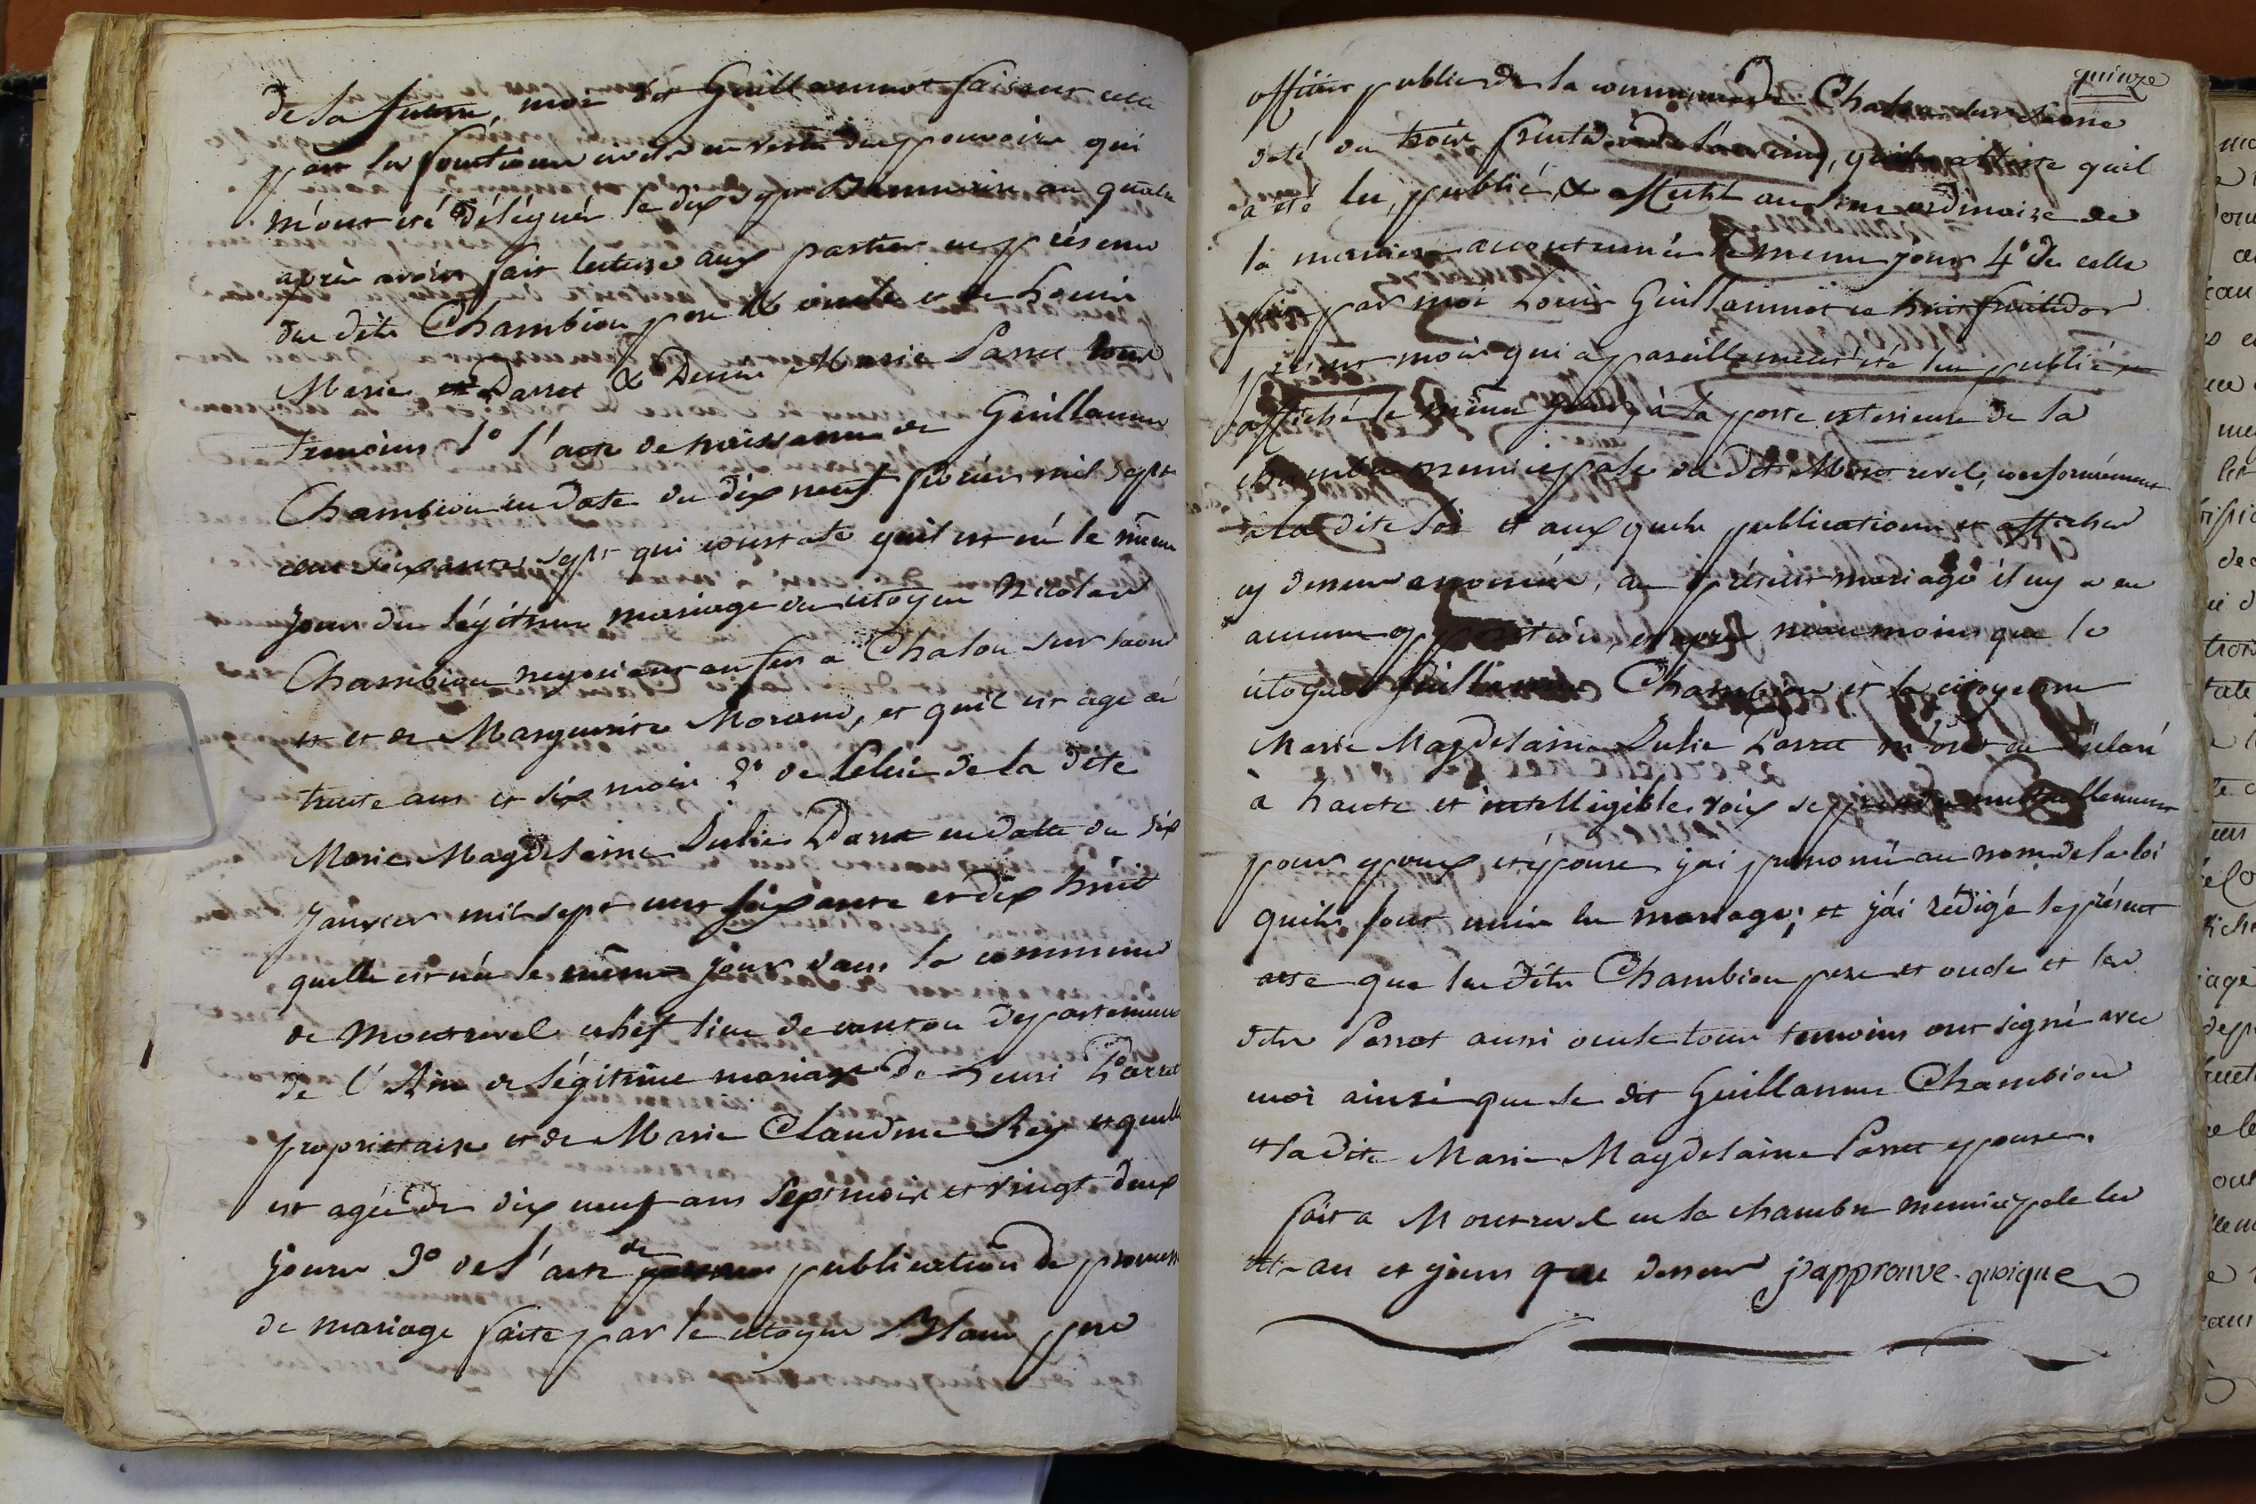 de la future, moi dit Guillaumot faisant celle
par les fonctions civiles en vertu des pouvoirs qui
m'ont été délégués le dix sept an quatre
après avoir fait lecture aux parties en présence
des dits Chambion pere & oncle et de Louis
Marie Parret & Denis Marie Parret tous
temoins 1° l'acte de naissance de Guillaume
Chambion en date du dix neuf février mil sept
cent soixante sept qui constate quil est né le même
jour du légitime mariage du citoyen Nicolas
Chambion negociant en fers a Chalon sur saone
et de Marguerite Morand, et quil est agé de
trente ans et six mois 2° de Celui de la dite
Marie Magdelaine Julie Parret en datte du dix
janvier mil sept cent soixante et dix huit
quelle est née le même jour dans la commune
de Montrevel chef lieu de canton departement
de l'Ain de légitime mariage de Henri Parret
propriétaire et de Marie Claudine Rey et quelle
est agée de dix neuf ans sept mois et vingt deux
jours 3° de l'acte de publication de promesse
de mariage faite par le citoyen Blanc pere
quinze
officier public de la commune de Chalon sur Saone
daté du trois fructidor an cinq, quil atteste quil
a été lu, publié & affiché au lieu ordinaire de
la maniere accoutumée le meme jour 4° de celle
faite par moi Louis Guillaumot le huit fructidor
présent mois qui a pareillement été lu publié
affiché le même jour à la porte exterieure de la
chambre municipale du dit Montrevel, conformément
à la dite loi et auxquels publications et affiches
cy dessus enoncées, au présent mariage il ny a eu
aucune opposition, et après néanmoins que le
citoyen Guillaume Chambion et la citoyenne
Marie Magdelaine Julie Parret m'ont eu déclaré
à haute et intelligible voix se prendre mutuellement
pour epoux et épouse j'ai prononcé au nom de la loi
quils sont unis en mariage; et j'ai rédigé le présent
acte que les dits Chambion pere et oncle et les
dits Parret aussi oncle tous temoins ont signé avec
moi ainsi que le dit Guillaume Chambion
et la dite Marie Magdelaine Parret epouse.
fait a Montrevel en la chambre municipale les
an et jour que dessus j'approuve quoique